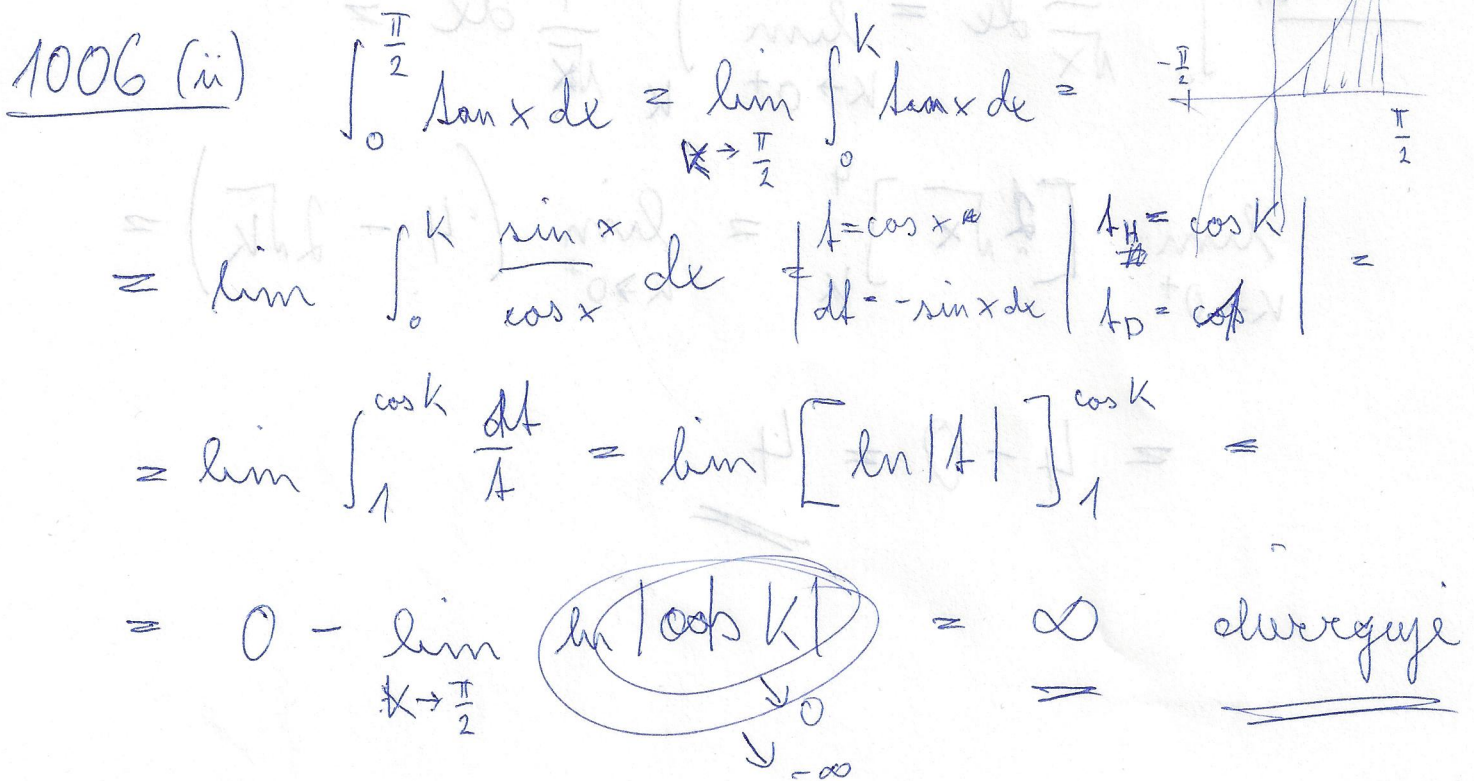 1006 (ii) ∫_0^{π/2} tan x dx = lim_{K→π/2} ∫_0^K tan x dx = -π/2 π/2
= lim ∫_0^K sin x / cos x dx = | t = cos x dt = -sin x dx | t_H = cos K t_D = cos | =
= lim ∫_1^{cos K} dt/t = lim [ ln |t| ]_1^{cos K} =
= 0 - lim_{K→π/2} ln |cos K| = ∞ diverguje
↘ 0
↘ -∞